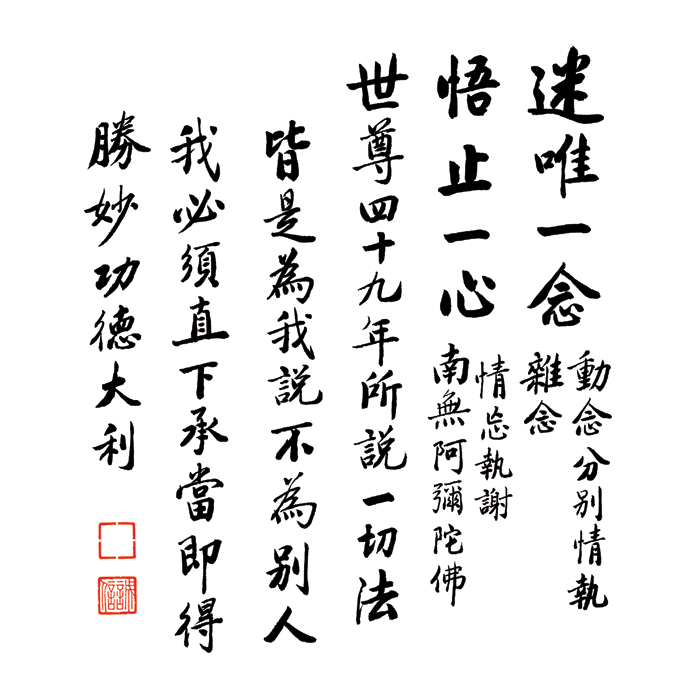 迷唯一念
動念分別情執
雜念
悟止一心
情忘執謝
南無阿彌陀佛
世尊四十九年所說一切法
皆是為我說不為別人
我必須直下承當即得
勝妙功德大利